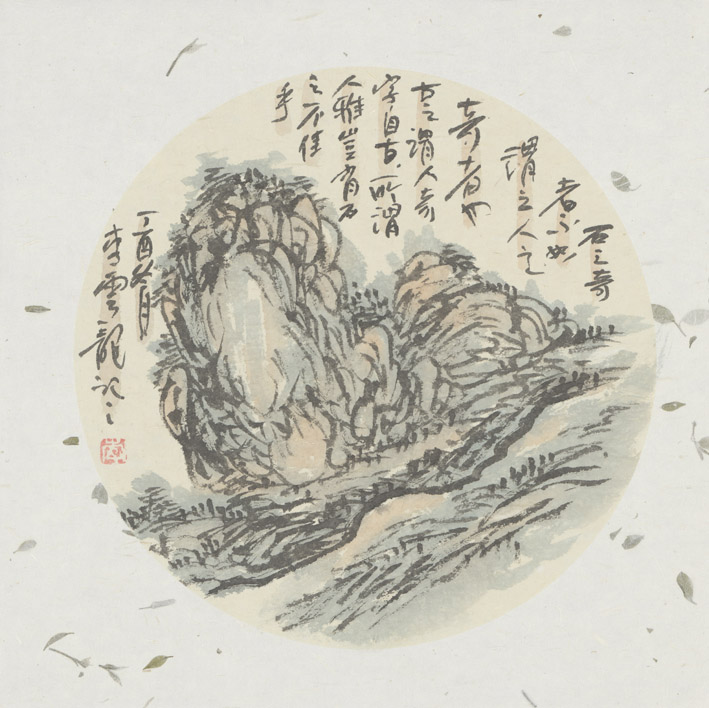 石之奇
者不如
謂之人之
奇者也
古之謂人奇
字自古所謂
人雅豈有石
之不佳
乎
丁酉冬月
李雲龍记之